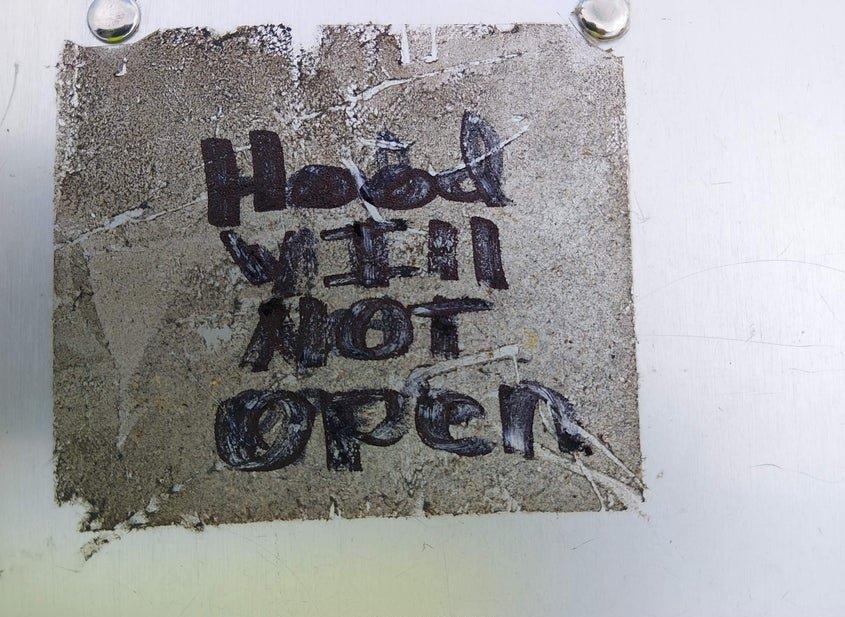 Hood
WIll
NOT
OPen